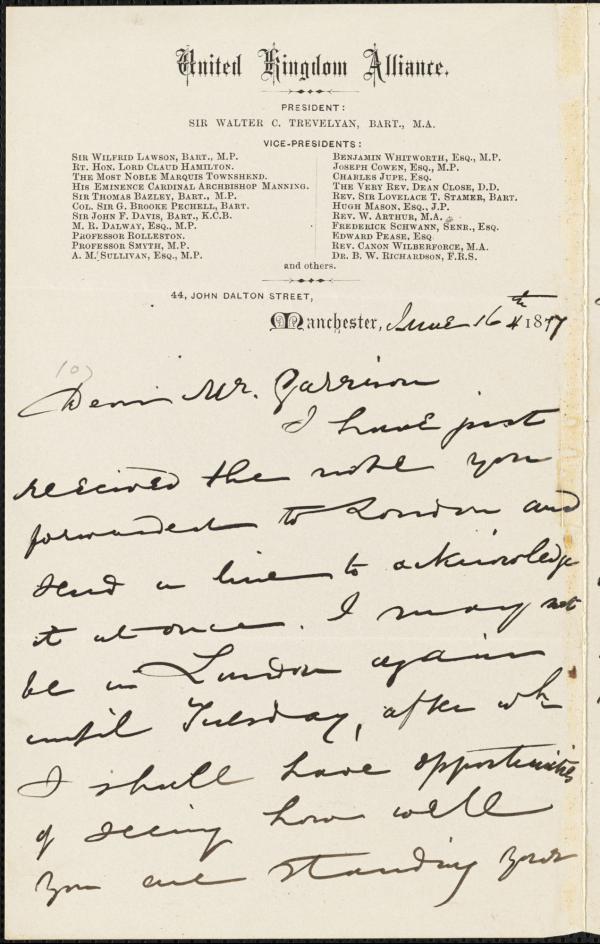 United Kingdom Alliance.
PRESIDENT:
SIR WALTER C. TREVELYAN, BART., M.A.
VICE-PRESIDENTS:
SIR WILFRID LAWSON, BART., M.P.
RT. HON. LORD CLAUD HAMILTON.
THE MOST NOBLE MARQUIS TOWNSHEND.
HIS EMINENCE CARDINAL ARCHBISHOP MANNING.
SIR THOMAS BAZLEY, BART., M.P.
COL. SIR G. BROOKE PECHELL, BART.
SIR JOHN F. DAVIS, BART., K.C.B.
M. R. DALWAY, ESQ., M.P.
PROFESSOR ROLLESTON.
PROFESSOR SMYTH, M.P.
A. M. SULLIVAN, ESQ., M.P.
BENJAMIN WHITWORTH, ESQ., M.P.
JOSEPH COWEN, ESQ., M.P.
CHARLES JUPE, ESQ.
THE VERY REV. DEAN CLOSE, D.D.
REV. SIR LOVELACE T. STAMER, BART.
HUGH MASON, ESQ., J.P.
REV. W. ARTHUR, M.A.
FREDERICK SCHWANN, SENR., ESQ.
EDWARD PEASE, ESQ
REV. CANON WILBERFORCE, M.A.
DR. B. W. RICHARDSON, F.R.S.
and others.
44, JOHN DALTON STREET,
Manchester, June 16th 1877
Dear Mr. Garrison
I have just
received the note you
forwarded to London and
send a line to acknowledge
it at once. I may not
be in London again
until Tuesday, after wh
I shall have opportunities
of seeing how well
you are standing your